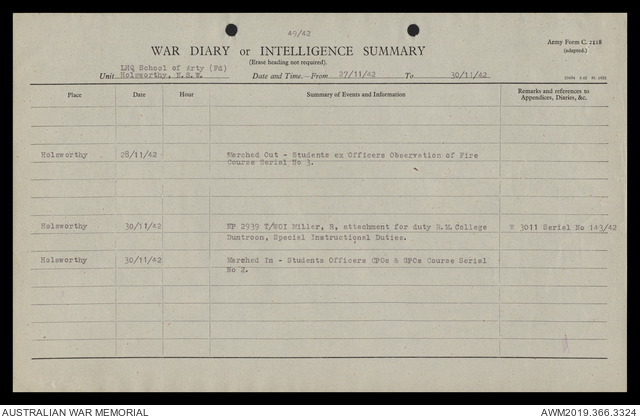 49/42
Army Form C. 2118
(adapted.)
WAR DIARY or INTELLIGENCE SUMMARY
(Erase heading not required).
Unit LHQ School of Arty (Fd)
Holsworthy, N.S.W. Date and Time.—From 27/11/42 To 30/11/42
Place Date Hour Summary of Events and Information Remarks and references to
Appendices, Diaries, &c.
Holsworthy 28/11/42 Marched Out - Students ex Officers Observation of Fire
Course Serial No 3.
Holsworthy 30/11/42 NP 2939 T/WOI Miller, R, attachment for duty R.M. College W 3011 Serial No 143/42
Duntroon, Special Instructional Duties.
Holsworthy 30/11/42 Marched In - Students Officers CPOs & GPOs Course Serial
No 2.
AUSTRALIAN WAR MEMORIAL AWM2019.366.3324